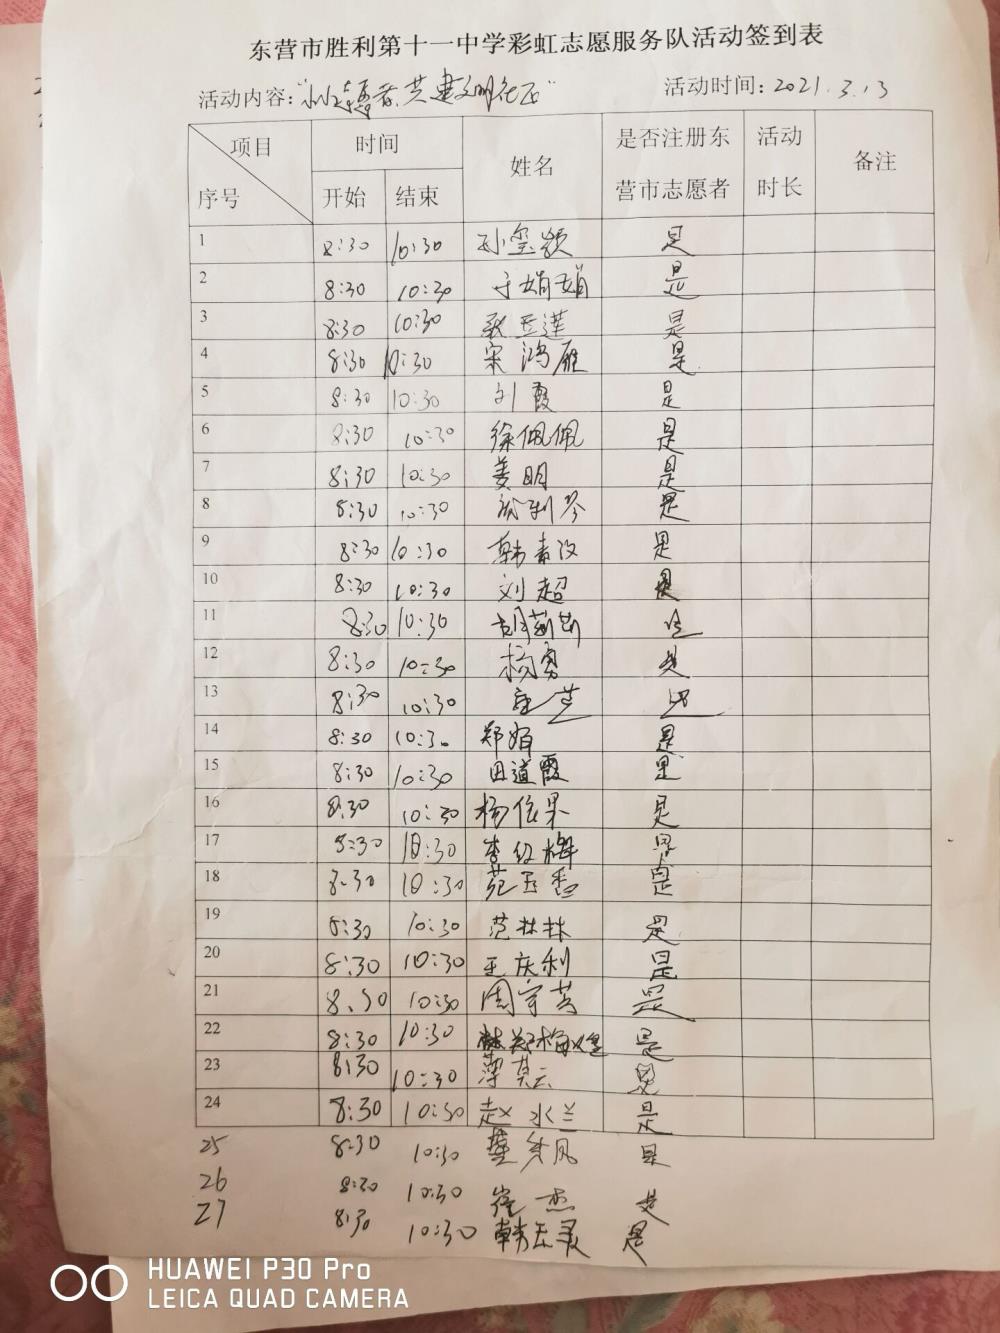 东营市胜利第十一中学彩虹志愿服务队活动签到表
活动内容: 共建文明社区" 活动时间: 2021.3.13
项目 序号 时间 开始 结束 姓名 是否注册东营市志愿者 活动时长 备注
1 8:30 10:30 孙玺颖 是
2 8:30 10:30 于娟娟 是
3 8:30 10:30 张玉莲 是
4 8:30 10:30 宋鸿雁 是
5 8:30 10:30 刘霞 是
6 8:30 10:30 徐佩佩 是
7 8:30 10:30 姜明 是
8 8:30 10:30 是
9 8:30 10:30 韩素 是
10 8:30 10:30 刘超 是
11 8:30 10:30 胡莉莉 是
12 8:30 10:30 杨勇 是
13 8:30 10:30 是
14 8:30 10:30 郑娟 是
15 8:30 10:30 田道霞 是
16 8:30 10:30 杨依果 是
17 8:30 10:30 李红梅 是
18 8:30 10:30 范玉香 是
19 8:30 10:30 范林林 是
20 8:30 10:30 王庆利 是
21 8:30 10:30 周守芸 是
22 8:30 10:30 是
23 8:30 10:30 薄其云 是
24 8:30 10:30 赵水兰 是
25 8:30 10:30 是
26 8:30 10:30 崔杰 是
27 8:30 10:30 韩玉灵 是
HUAWEI P30 Pro
LEICA QUAD CAMERA